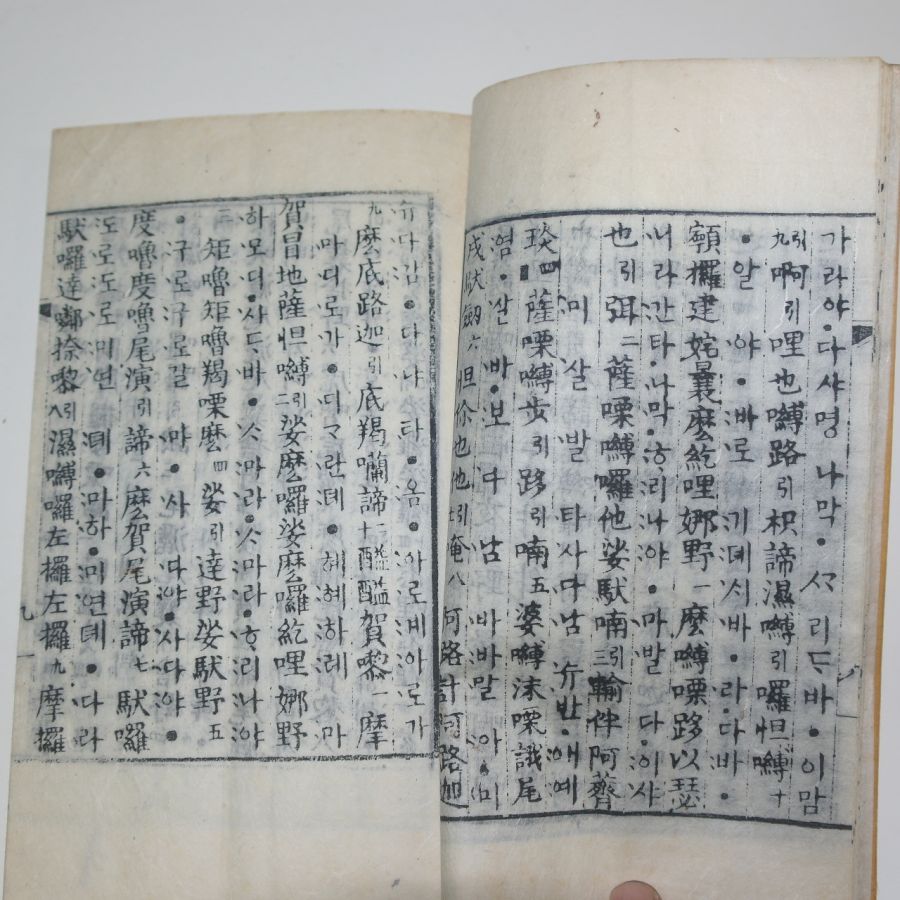 가라야・다사명 나막・ᄉᆞ리ᄃᆞ바・이맘
九引 阿引哩也嚩路引枳諦濕嚩引囉怛嚩十
・알 야・바로 기뎨ᄉᆡ바・라・다바・
顊攞建姹曩麼紇哩娜野一麼嚩㗚跢以瑟
니라간타・나막・ᄒᆞ리나야・마발다・이사
也引弭二薩㗚嚩囉他娑馱喃引三輸伴阿薺
미 살발타사다남 슈반・애예
琰四薩㗚嚩步引路引喃五婆嚩沫㗚誐尾
염・살바・보다남 바바말아・미
戍馱劒六怛你也他引七唵八阿路計阿路迦
슈다감・다냐타・옴・아로계아로가
九麼底路迦引底羯囒諦十醯醯賀嚟一摩
마디로가・디ᄀᆞ란뎨・혜혜하례 마
賀冒地薩怛嚩二引娑麼囉娑麼囉紇哩娜野
하모디・사ᄃᆞ바・ᄉᆞ마라・ᄉᆞ마라・ᄒᆞ리나야
三矩嚕矩嚕羯㗚麼四娑引達野娑馱野五
・구로구로갈마・사다야・사다야・
度嚕度嚕尾演引諦六麼賀尾演諦七馱囉
도로도로미연뎨・마하미연뎨・다라
馱囉達㘑捺嚟八引濕嚩囉左攞左攞九摩攞
九